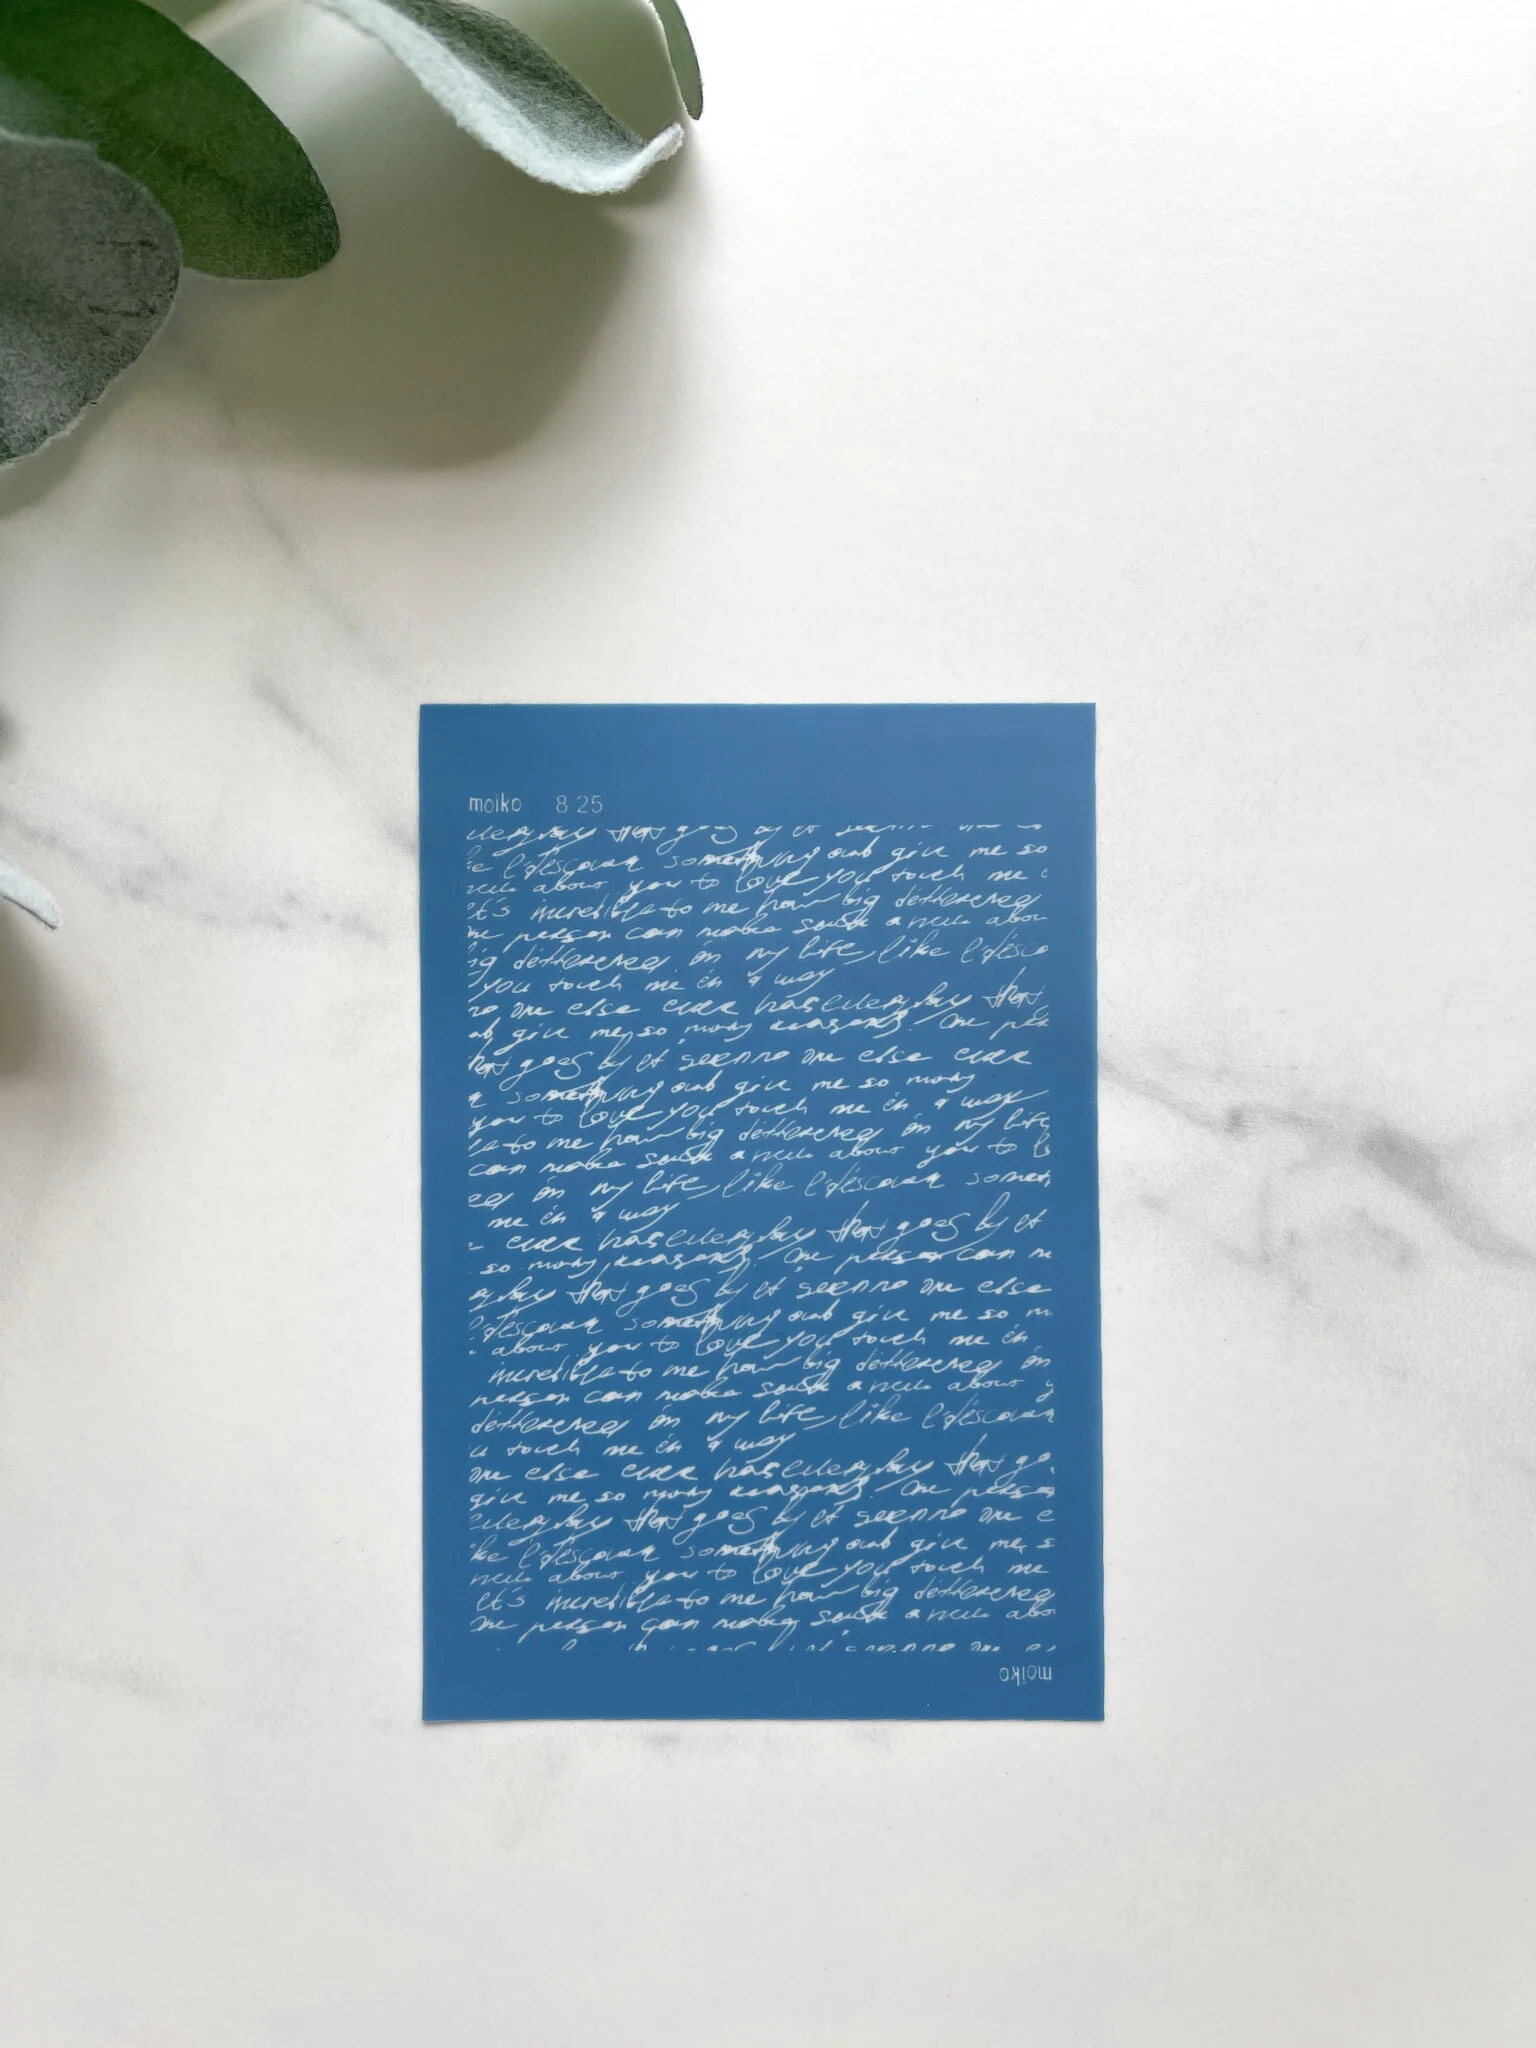 moiko 8.25
everyday that goes by it
I discover something and give me so
about you to love you touch me
it's incredible to me how big difference
person can make such a about
difference in my life, like I
you touch me in a way
no one else ever has everyday that
give me so many reasons. One
that goes by it seems no one else ever
something and give me so many
you to love you touch me in a way
to me how big difference in my life
can make such a about you to
in my life, like I discover
me in a way
ever has everyday that goes by it
so many reasons. One person can
that goes by it seems no one else
discover something and give me so
about you to love you touch me in
incredible to me how big difference in
person can make such a about
difference in my life, like I discover
touch me in a way
one else ever has everyday that go
give me so many reasons. One person
everyday that goes by it seems no one
I discover something and give me
about you to love you touch me
it's incredible to me how big difference
One person can make such a
no one
moiko